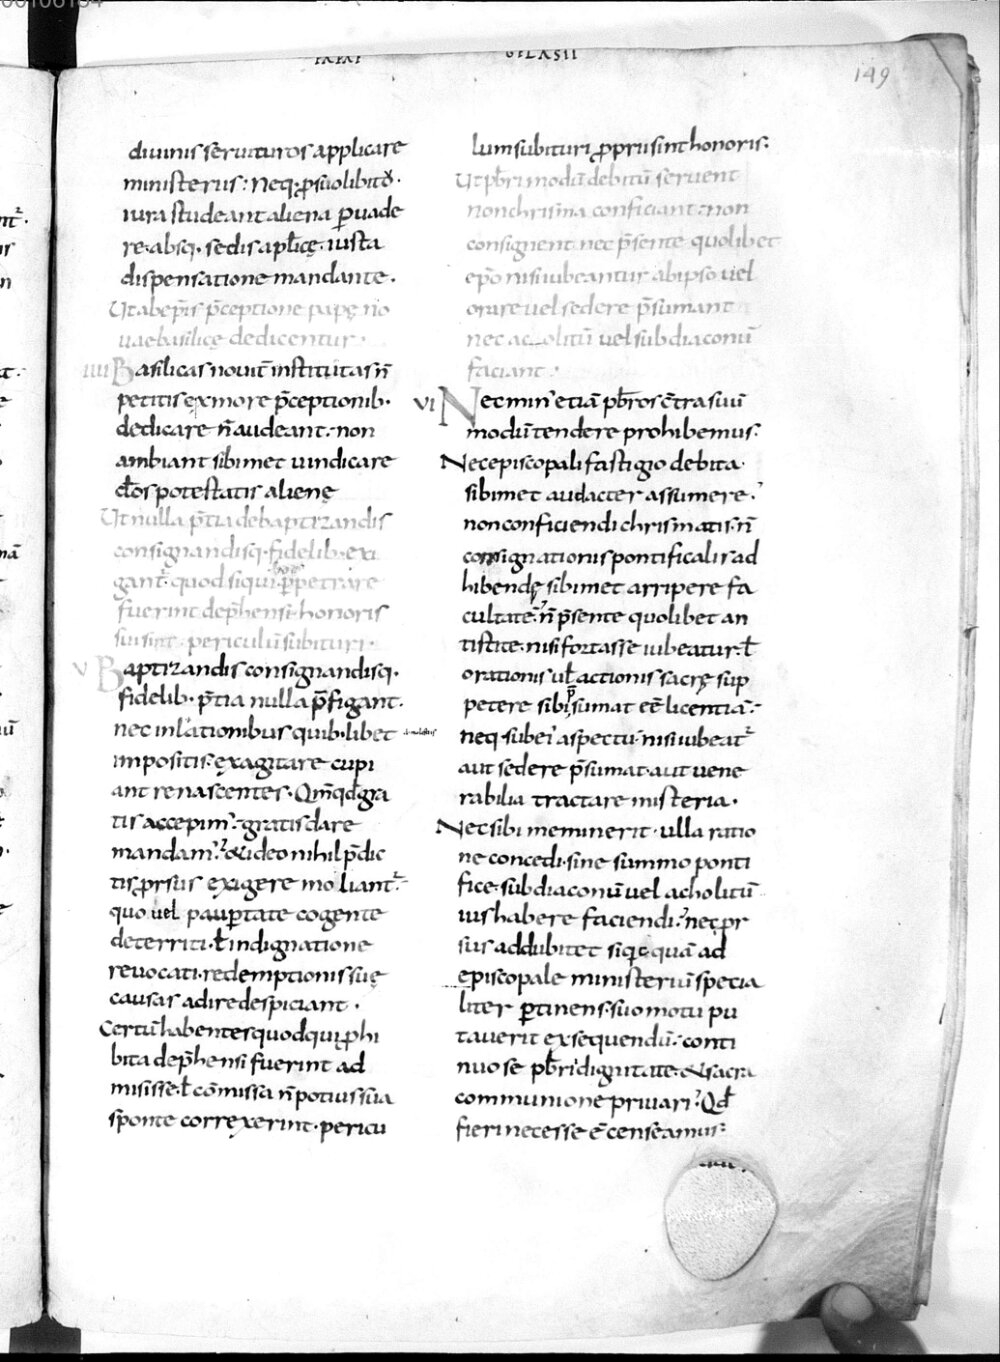 PAPAE GELASII
149
diuinis seruituros applicare
ministeriis: Neq; ꝓ suo libitu·
iura studeant aliena ꝑuade
re· absq; sedis apl̄icę iusta
dispensatione mandante·
Ut ab ep̄is p̄ceptione papę no
uae basilicę dedicentur·
IIII Basilicas nouit̄ institutas n̄
petitis ex more p̄ceptionib·
dedicare n̄ audeant: non
ambiant sibimet uindicare
cl̄os potestatis alienę
Ut nulla p̄tia de baptizandis
consignandisq; fidelib· exi
gant: quod siqui ꝑpetrare
fuerint dep̄hensi· honoris
sui sint periculū subituri·
V Baptizandis consignandisq·
fidelib· p̄tia nulla p̄figant·
nec inlationibus quib·libet
impositis: exagitare cupi
ant renascentes· Qm̄ qd̄ gra
tis accepim᾽· gratis dare
mandam᾽: & ideo nihil p̄dic
tis ꝓrsus exigere moliant᾽·
quo uel pauꝑtate cogente
deterriti· ł indignatione
reuocati· redemptionis suę
causas adire despiciant·
Certū habentes quod qui ꝓhi
bita dep̄hensi fuerint ad
misisse· ł cōmissa n̄ potius sua
sponte correxerint· pericu
lum subituri ꝓprii sint honoris:
Ut p̄bri modū debitū seruent
non chrisma conficiant: non
consignent nec p̄sente quolibet
ep̄o nisi iubeantur ab ipso uel
orare uel sedere p̄sumant
nec acolitū uel subdiaconū
faciant·
VI Nec min᾽ etiā p̄bros c̄tra suū
modū tendere prohibemus:
Nec episcopali fastigio debita·
sibimet audacter assumere·
non conficiendi chrismatis· n̄
consignationis pontificalis ad
hibendę sibimet arripere fa
cultatē· n̄ p̄sente quolibet an
tistite· nisi fortasse iubeatur· ł
orationis ul̄ actionis sacrę sup
petere sibi p̄sumat eē licentiā·
neq· sub ei᾽ aspectu· nisi iubeat᾽
aut sedere p̄sumat· aut uene
rabilia tractare misteria·
Nec sibi meminerit· ulla ratio
ne concedi· sine summo ponti
fice· subdiaconū uel acholitū
ius habere faciendi: nec ꝓr
sus addubitet siqͥcquā ad
episcopale ministeriū specia
liter ꝑtinens· suo motu pu
tauerit exsequendū· conti
nuo se p̄bri dignitate· & sacra
communione priuari· Qd̄
fieri necesse ē censeamus: